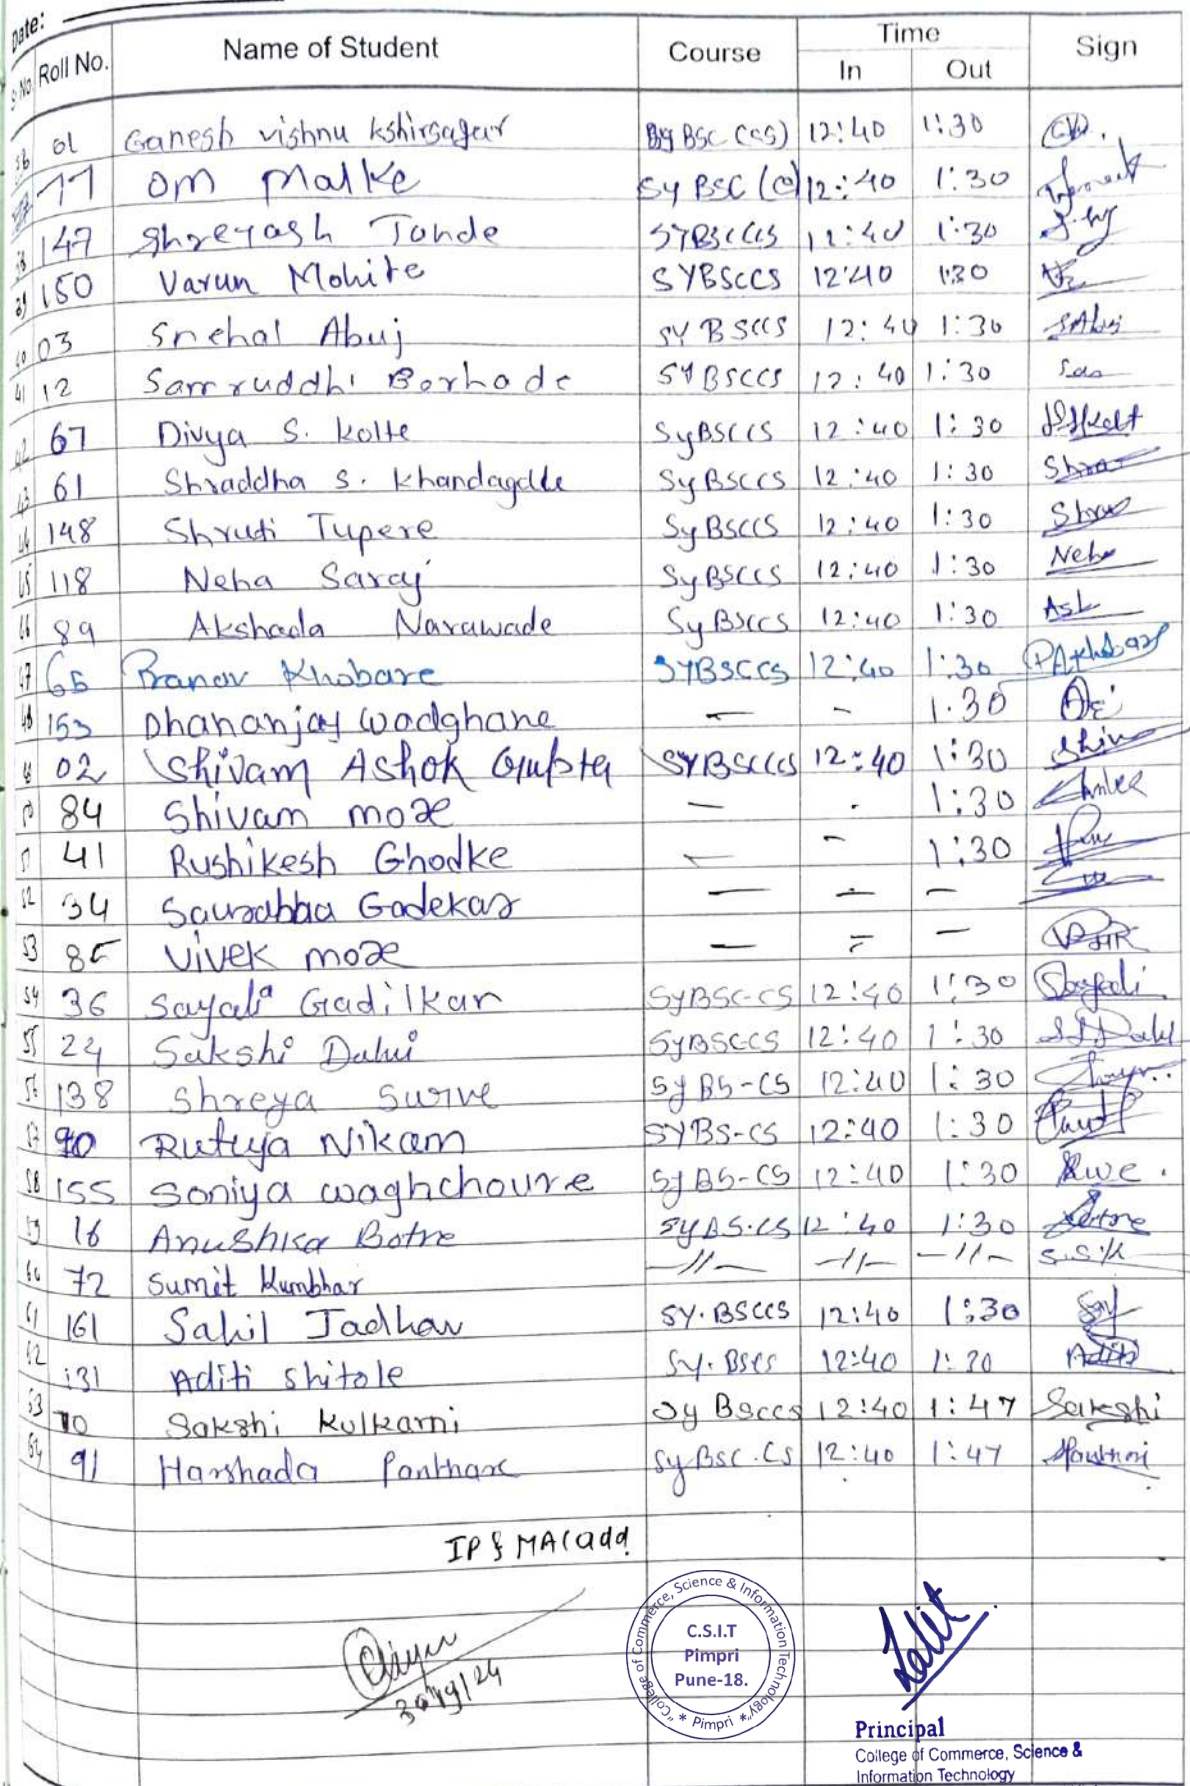 Date:
Sr. No. Roll No. Name of Student Course Time Sign
In Out
36 01 Ganesh vishnu Kshirsagar Sy BSC (CS) 12:40 1:30
77 Om Malke Sy BSC (CS) 12:40 1:30
38 147 Shreyash Tonde SYBSCCS 12:40 1:30
39 150 Varun Mohite SYBSCCS 12:40 1:30
40 03 Snehal Abuj SY BSCCS 12:40 1:30 SAbuj
41 12 Samruddhi Borhade SYBSCCS 12:40 1:30
42 67 Divya S. Kolte SyBSCCS 12:40 1:30
43 61 Shraddha S. Khandagale SyBSCCS 12:40 1:30 Shra
44 148 Shruti Tupere SyBSCCS 12:40 1:30
45 118 Neha Saraj SyBSCCS 12:40 1:30 Neha
46 89 Akshada Narawade SyBSCCS 12:40 1:30 Ask
47 65 Pranav Khobare SYBSCCS 12:40 1:30 PAKhobare
48 153 Dhananjay Wadghane — - 1:30
49 02 Shivam Ashok Gupta SYBSCCS 12:40 1:30 Shivam
50 84 Shivam more — - 1:30
51 41 Rushikesh Ghodke — - 1:30
52 34 Saurabhaa Godekar — — —
53 85 Vivek more — = —
54 36 Sayali Gadilkar SyBSC-CS 12:40 1:30 Sayali
55 24 Sakshi Dalvi SyBSCCS 12:40 1:30
56 138 Shreya Surve SyBS-CS 12:40 1:30
57 90 Rutuja Nikam SYBS-CS 12:40 1:30
58 155 Soniya waghchoure SyBS-CS 12:40 1:30
59 16 Anushka Botre SyBS-CS 12:40 1:30 Botre
60 72 Sumit Kumbhar —//— —//— —//— S.S.K
61 161 Sahil Jadhav SY.BSCCS 12:40 1:30
62 131 Aditi Shitole Sy.BSCS 12:40 1:30 Aditi
63 70 Sakshi Kulkarni Sy Bsccs 12:40 1:47 Sakshi
64 91 Harshada Panthare SyBSC.CS 12:40 1:47
IP & MAC add
30/9/24
"College of Commerce, Science & Information Technology"
* Pimpri *
C.S.I.T
Pimpri
Pune-18.
Lalit
Principal
College of Commerce, Science &
Information Technology